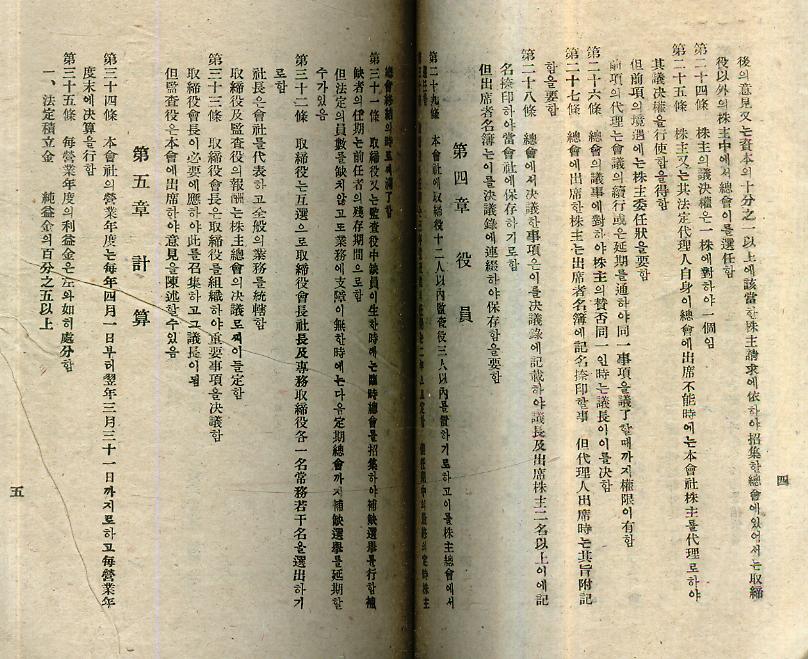 後의意見又는資本의十分之一以上에該當한株主請求에依하야招集한總會에있어서는取締
役以外의株主中에서總會이를選任함
第二十四條　株主의議決權은一株에對하야一個임
第二十五條　株主又는其法定代理人自身이總會에出席不能時에는本會社株主를代理로하야
其議決權을行使함을得함
但前項의境遇에는株主委任狀을要함
前項의代理는會議의續行或은延期를通하야同一事項을議了할때까지權限이有함
第二十六條　總會의議事에對하야株主의賛否同一인時는議長이이를決함
第二十七條　總會에出席한株主는出席者名簿에記名捺印할事　但代理人出席時는其旨附記
함을要함
第二十八條　總會에서決議한事項은이를決議錄에記載하야議長及出席株主二名以上이에記
名捺印하야當會社에保存하기로함
但出席者名簿는를決議錄에連綴하야保存함을要함
第四章　役員
第二十九條　本會社에取締役十二人以內監査役三人以內를置하기로하고이를株主總會에서
總會終結의時로써滿了함
第三十一條　取締役又는監査役中缺員이生한時에는臨時總會를招集하야補缺選擧를行함補
缺者의任期는前任者의殘存期間으로함
但法定의員數를缺치않고또業務에支障이無한時에는다음定期總會까지補缺選擧를延期할
수가있음
第三十二條　取締役는互選으로取締役會長社長及專務取締役各一名常務若干名을選出하기
로함
社長은會社를代表하고全般의業務를統轄함
取締役及監査役의報酬는株主總會의決議로써이를定함
第三十三條　取締役會長은取締役을組織하야重要事項을決議함
取締役會長이必要에應하야此를召集하고그議長이됨
但監査役은本會에出席하야意見을陳述할수있음
第五章　計算
第三十四條　本會社의營業年度는每年四月一日부터翌年三月三十一日까지로하고每營業年
度末에決算을行함
第三十五條　每營業年度의利益金은左와如히處分함
一、法定積立金　純益金의百分之五以上
四
五